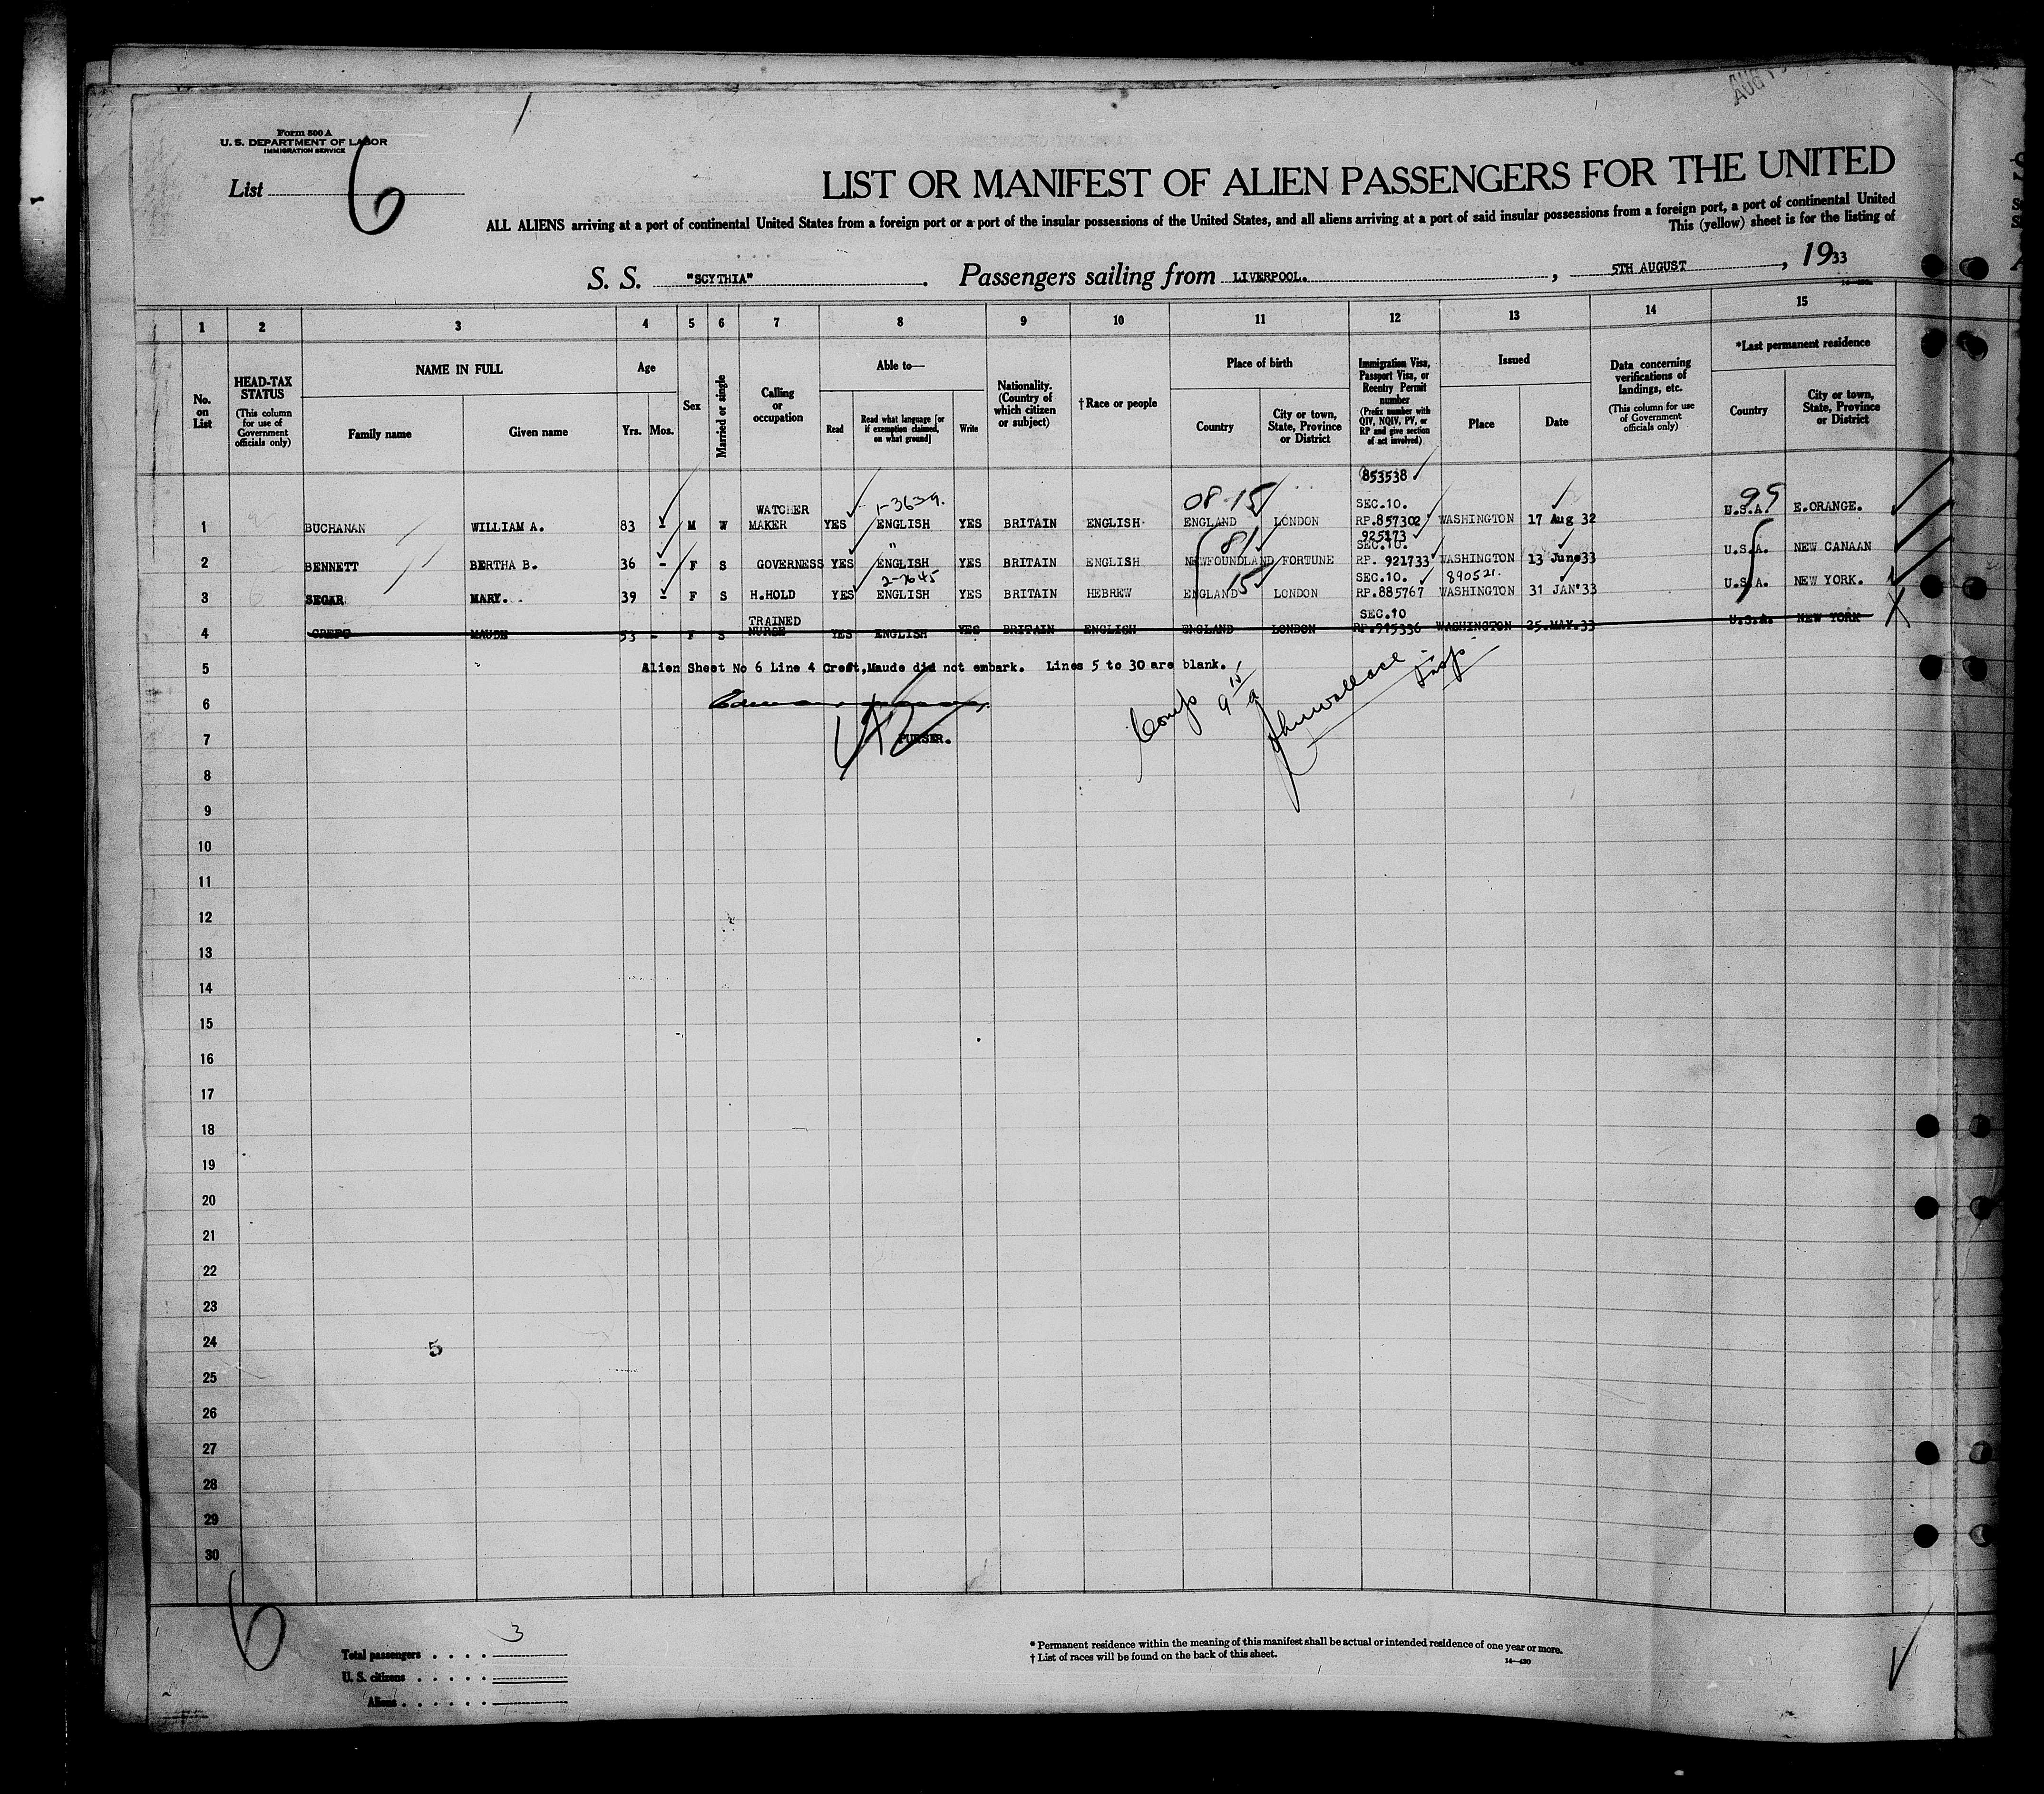 AUG 1
Form 500 A
U. S. DEPARTMENT OF LABOR
IMMIGRATION SERVICE
List 6
LIST OR MANIFEST OF ALIEN PASSENGERS FOR THE UNITED
ALL ALIENS arriving at a port of continental United States from a foreign port or a port of the insular possessions of the United States, and all aliens arriving at a port of said insular possessions from a foreign port, a port of continental United
This (yellow) sheet is for the listing of
S. S. "SCYTHIA". Passengers sailing from LIVERPOOL. , 5TH AUGUST , 1933
1 2 3 4 5 6 7 8 9 10 11 12 13 14 15
No. on List
HEAD-TAX STATUS (This column for use of Government officials only)
NAME IN FULL
Family name
Given name
Age
Yrs. Mos.
Sex
Married or single
Calling or occupation
Able to—
Read
Read what language [or if exemption claimed, on what ground]
Write
Nationality. (Country of which citizen or subject)
†Race or people
Place of birth
Country
City or town, State, Province or District
Immigration Visa, Passport Visa, or Reentry Permit number (Prefix number with QIV, NQIV, PV, or RP and give section of act involved)
Issued
Place
Date
Data concerning verifications of landings, etc. (This column for use of Government officials only)
*Last permanent residence
Country
City or town, State, Province or District
853538
WATCHER 1-3639. 08-15 SEC.10. 95
1 BUCHANAN WILLIAM A. 83 - M W MAKER YES ENGLISH YES BRITAIN ENGLISH ENGLAND LONDON RP.857302 WASHINGTON 17 Aug 32 U.S.A. E.ORANGE.
925173
" 81 SEC.10.
2 BENNETT BERTHA B. 36 - F S GOVERNESS YES ENGLISH YES BRITAIN ENGLISH NEWFOUNDLAND FORTUNE RP. 921733 WASHINGTON 13 June 33 U.S.A. NEW CANAAN
2-7645 15 SEC.10. 890521.
3 SEGAR MARY. 39 - F S H.HOLD YES ENGLISH YES BRITAIN HEBREW ENGLAND LONDON RP.885767 WASHINGTON 31 JAN'33 U.S.A. NEW YORK.
TRAINED SEC.10
4 MAUDE 53 - F S NURSE YES ENGLISH YES BRITAIN ENGLISH ENGLAND LONDON RP.915336 WASHINGTON 25.MAY.33 U.S.A. NEW YORK X
5 Alien Sheet No 6 Line 4 Creft,Maude did not embark. Lines 5 to 30 are blank.
6
7 PURSER.
8
9
10
11
12
13
14
15
16
17
18
19
20
21
22
23
24 5
25
26
27
28
29
30
6
Total passengers . . . . 3
U. S. citizens . . . . .
Aliens . . . . . .
* Permanent residence within the meaning of this manifest shall be actual or intended residence of one year or more.
† List of races will be found on the back of this sheet.
14—430